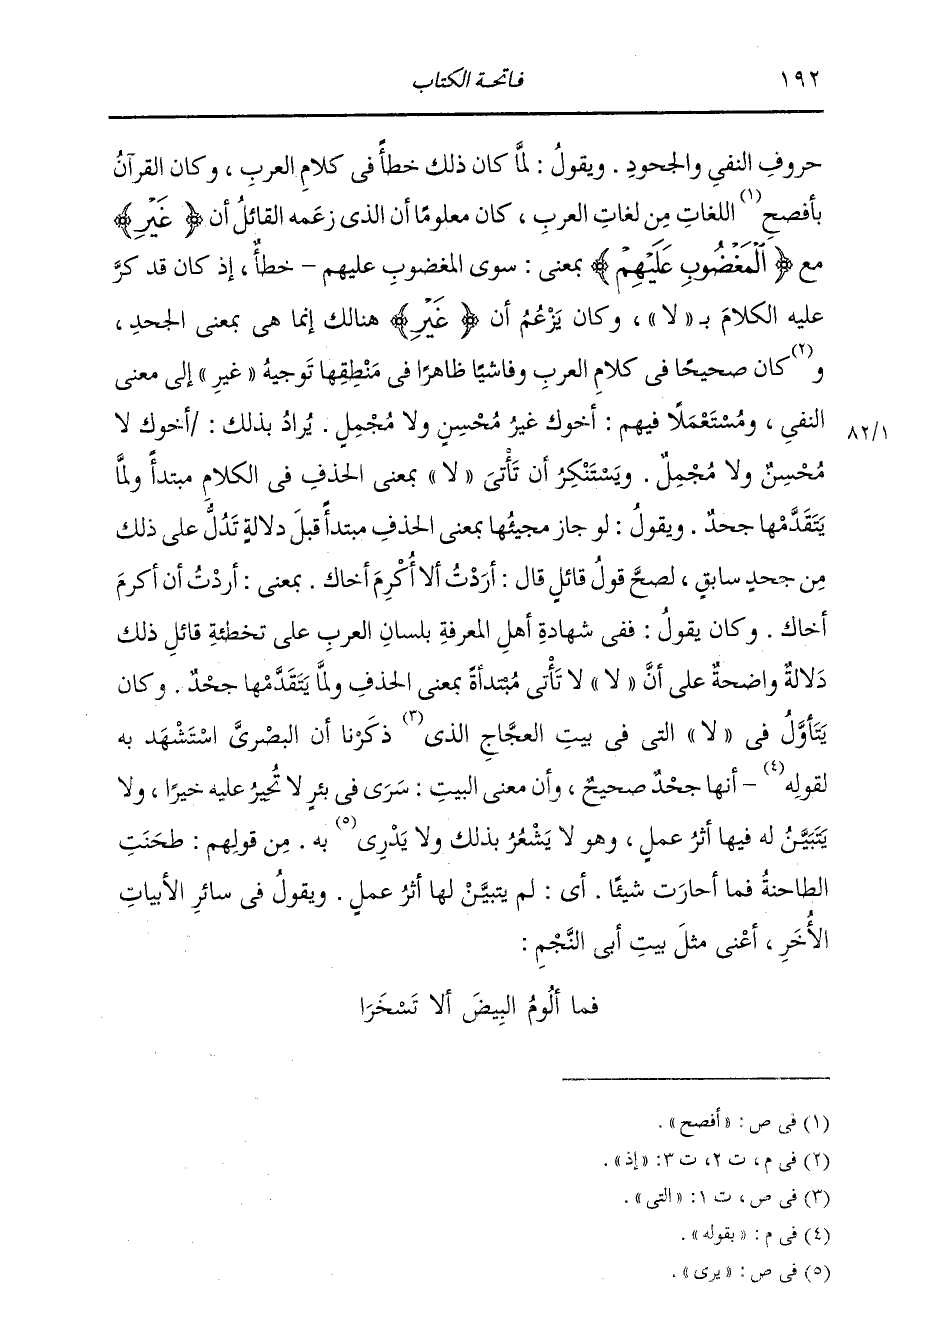 ١٩٢
فاتحة الكتاب
حروفِ النفىِ والجحودِ . ويقولُ : لمَّا كان ذلك خطأً فى كلامِ العربِ ، وكان القرآنُ
بأفصحِ(١) اللغاتِ مِن لغاتِ العربِ ، كان معلومًا أن الذى زعَمه القائلُ أن ﴿ غَيْرِ ﴾
مع ﴿ الْمَغْضُوبِ عَلَيْهِمْ ﴾ بمعنى : سوى المغضوبِ عليهم – خطأٌ ، إذ كان قد كرَّ
عليه الكلامَ بـ « لا » ، وكان يَزْعُمُ أن ﴿ غَيْرِ ﴾ هنالك إنما هى بمعنى الجحدِ ،
و(٢)كان صحيحًا فى كلامِ العربِ وفاشيًا ظاهرًا فى مَنْطِقِها تَوجيهُ « غيرِ » إلى معنى
النفىِ ، ومُسْتَعْمَلًا فيهم : أخوك غيرُ مُحْسِنٍ ولا مُجْمِلٍ . يُرادُ بذلك : /أخوك لا
٨٢/١
مُحْسِنٌ ولا مُجْمِلٌ . ويَسْتَنْكِرُ أن تَأْتىَ « لا » بمعنى الحذفِ فى الكلامِ مبتدأً ولمَّا
يَتَقَدَّمْها جحدٌ . ويقولُ : لو جاز مجيئُها بمعنى الحذفِ مبتدأً قبلَ دلالةٍ تَدُلُّ على ذلك
مِن جحدٍ سابقٍ ، لصحَّ قولُ قائلٍ قال : أرَدْتُ ألا أُكْرِمَ أخاك . بمعنى : أردْتُ أن أكرمَ
أخاك . وكان يقولُ : ففى شهادةِ أهلِ المعرفةِ بلسانِ العربِ على تخطئةِ قائلِ ذلك
دَلالةٌ واضحةٌ على أنَّ « لا » لا تَأْتى مُبْتدأةً بمعنى الحذفِ ولمَّا يَتَقَدَّمْها جحْدٌ . وكان
يَتَأوَّلُ فى « لا » التى فى بيتِ العجَّاجِ الذى(٣) ذكَرْنا أن البصْرىَّ اسْتَشْهَد به
لقولِه(٤) – أنها جحْدٌ صحيحٌ ، وأن معنى البيتِ : سَرَى فى بئرٍ لا تُحِيرُ عليه خيرًا ، ولا
يَتَبَيَّنُ له فيها أثرُ عملٍ ، وهو لا يَشْعُرُ بذلك ولا يَدْرِى(٥) به . مِن قولِهم : طحَنَتِ
الطاحنةُ فما أحارَت شيئًا . أى : لم يتبيَّنْ لها أثرُ عملٍ . ويقولُ فى سائرِ الأبياتِ
الأُخَرِ ، أعْنى مثلَ بيتِ أبى النَّجْمِ :
فما ألُومُ البِيضَ ألا تَسْخَرَا
(١) فى ص : «أفصح» .
(٢) فى م ، ت ٢، ت ٣: «إذ» .
(٣) فى ص ، ت ١: «التى» .
(٤) فى م : «بقوله» .
(٥) فى ص : «يرى» .